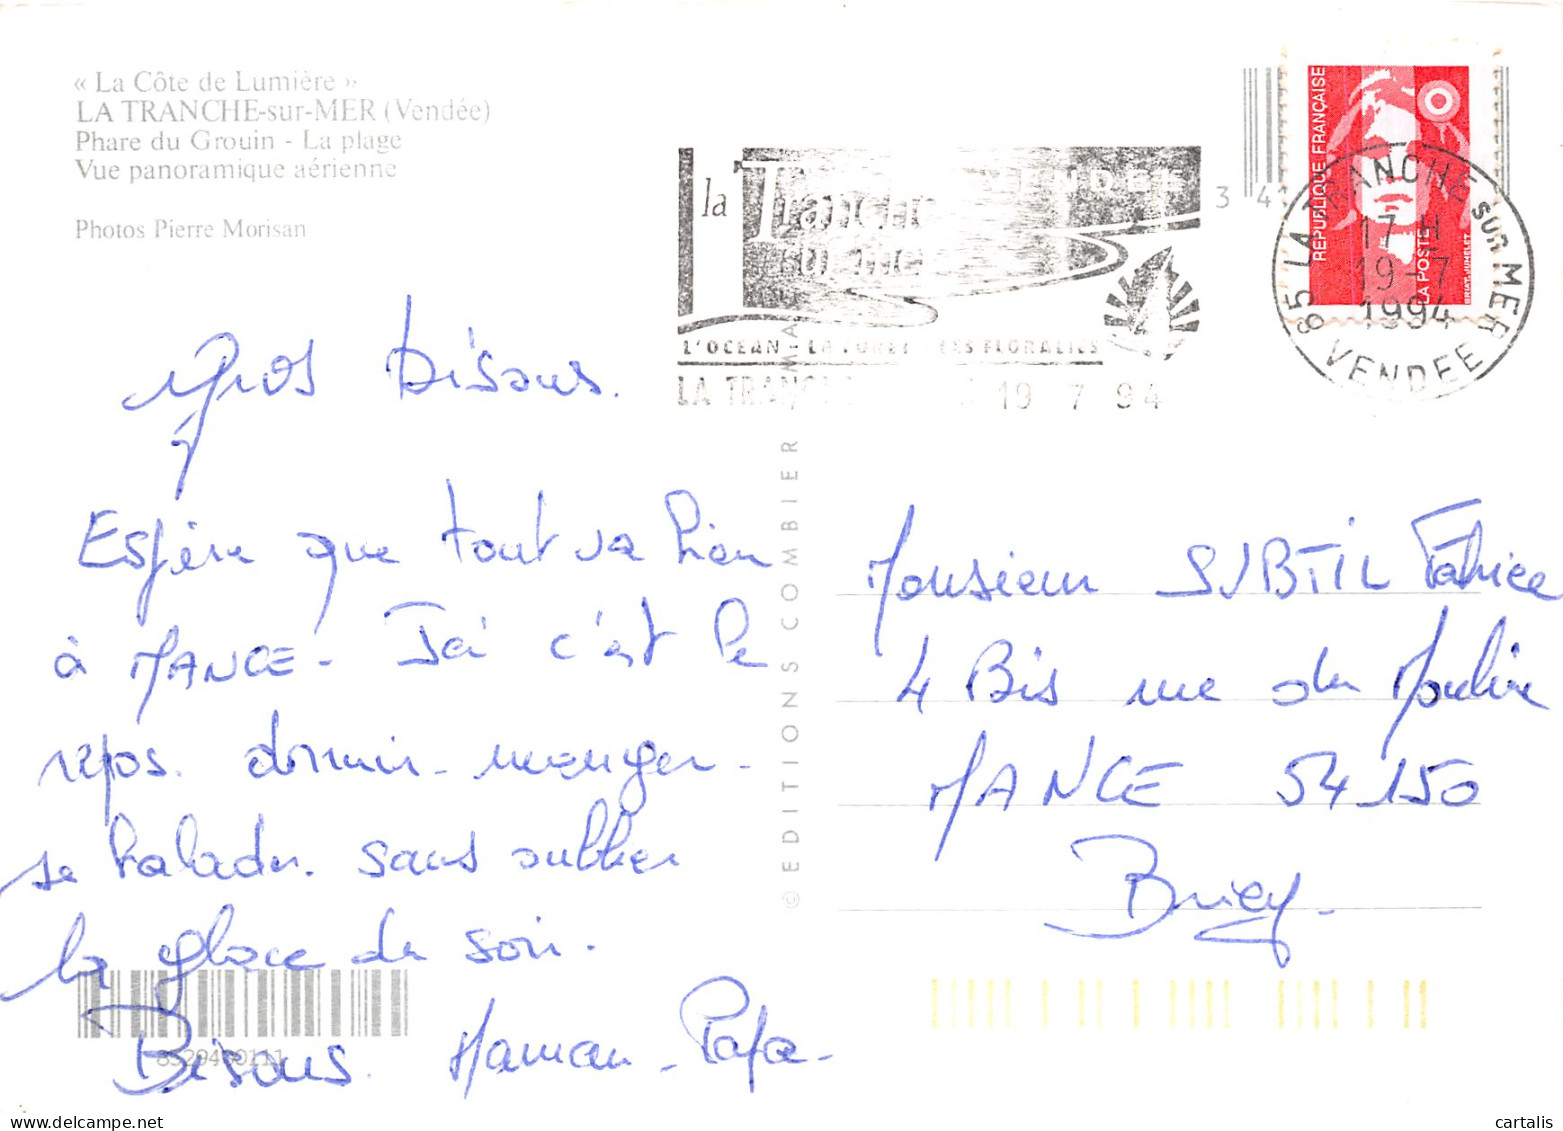 « La Côte de Lumière »
LA TRANCHE-sur-MER (Vendée)
Phare du Grouin - La plage
Vue panoramique aérienne
Photos Pierre Morisan
Gros bisous.
Espère que tout va bien
à MANCE - Ici c'est le
repos. dormir - manger -
se balader. sans oublier
la glace du soir.
Bisous. Maman - Papa -
8529400111
© EDITIONS COMBIER MA
VENDEE
la Tranche
sur mer
L'OCEAN - LA FORET - LES FLORALIES
LA TRANCHE 19 7 94
34
REPUBLIQUE FRANÇAISE
LA POSTE
BRIAT-JUMELET
85 LA TRANCHE SUR MER
17 H
19-7
1994
VENDEE
Monsieur SUBTIL Fabrice
4 Bis rue du Moulin
MANCE 54150
Briey -